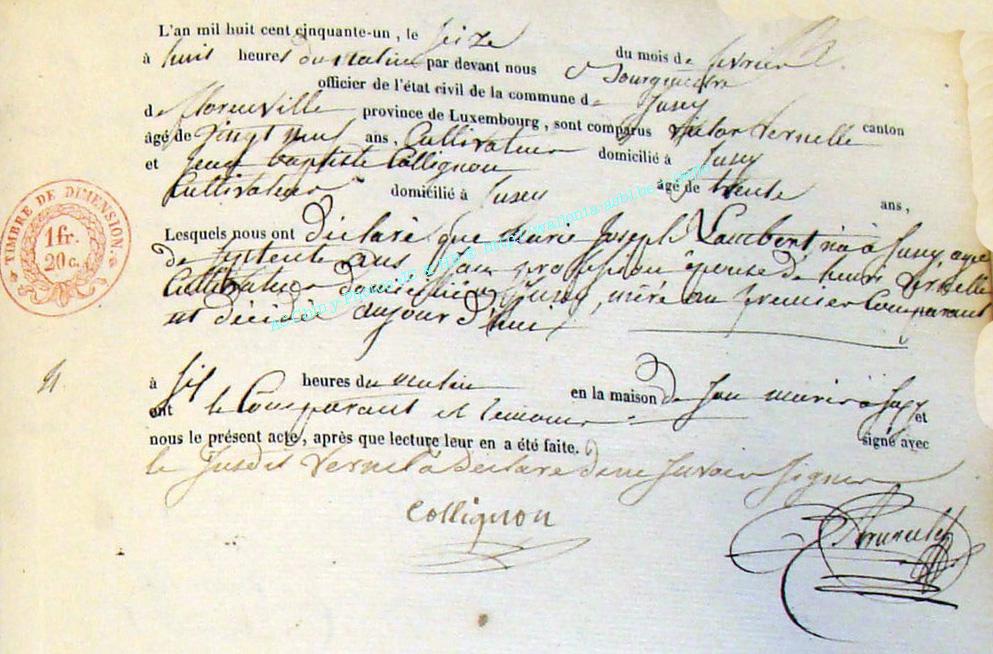 L'an mil huit cent cinquante-un, le seize
du mois de fevrier
à huit heures du matin par devant nous Bourgmestre
officier de l'état civil de la commune de Jusey
canton
de province de Luxembourg, sont comparus Victor Vernelle
âgé de vingt neuf ans, Cultivateur domicilié à Jusey
et Jean baptiste Collignon
âgé de trente ans,
Cultivateur domicilié à Jusey
Lesquels nous ont déclaré que marie Joseph Lambert née à Jusey, agée
de ans, sans profession épouse de henri Vernelle
Cultivateur domicilié à Jusey, mère au premier Comparant
est décédée aujourd'hui
à six heures du matin en la maison de son mari à
ont le Comparant et temoin et
signé avec
nous le présent acte, après que lecture leur en a été faite.
le susdit Vernel à declaré de ne savoir signer
Collignon
TIMBRE DE DIMENSION
1 fr.
20 c.